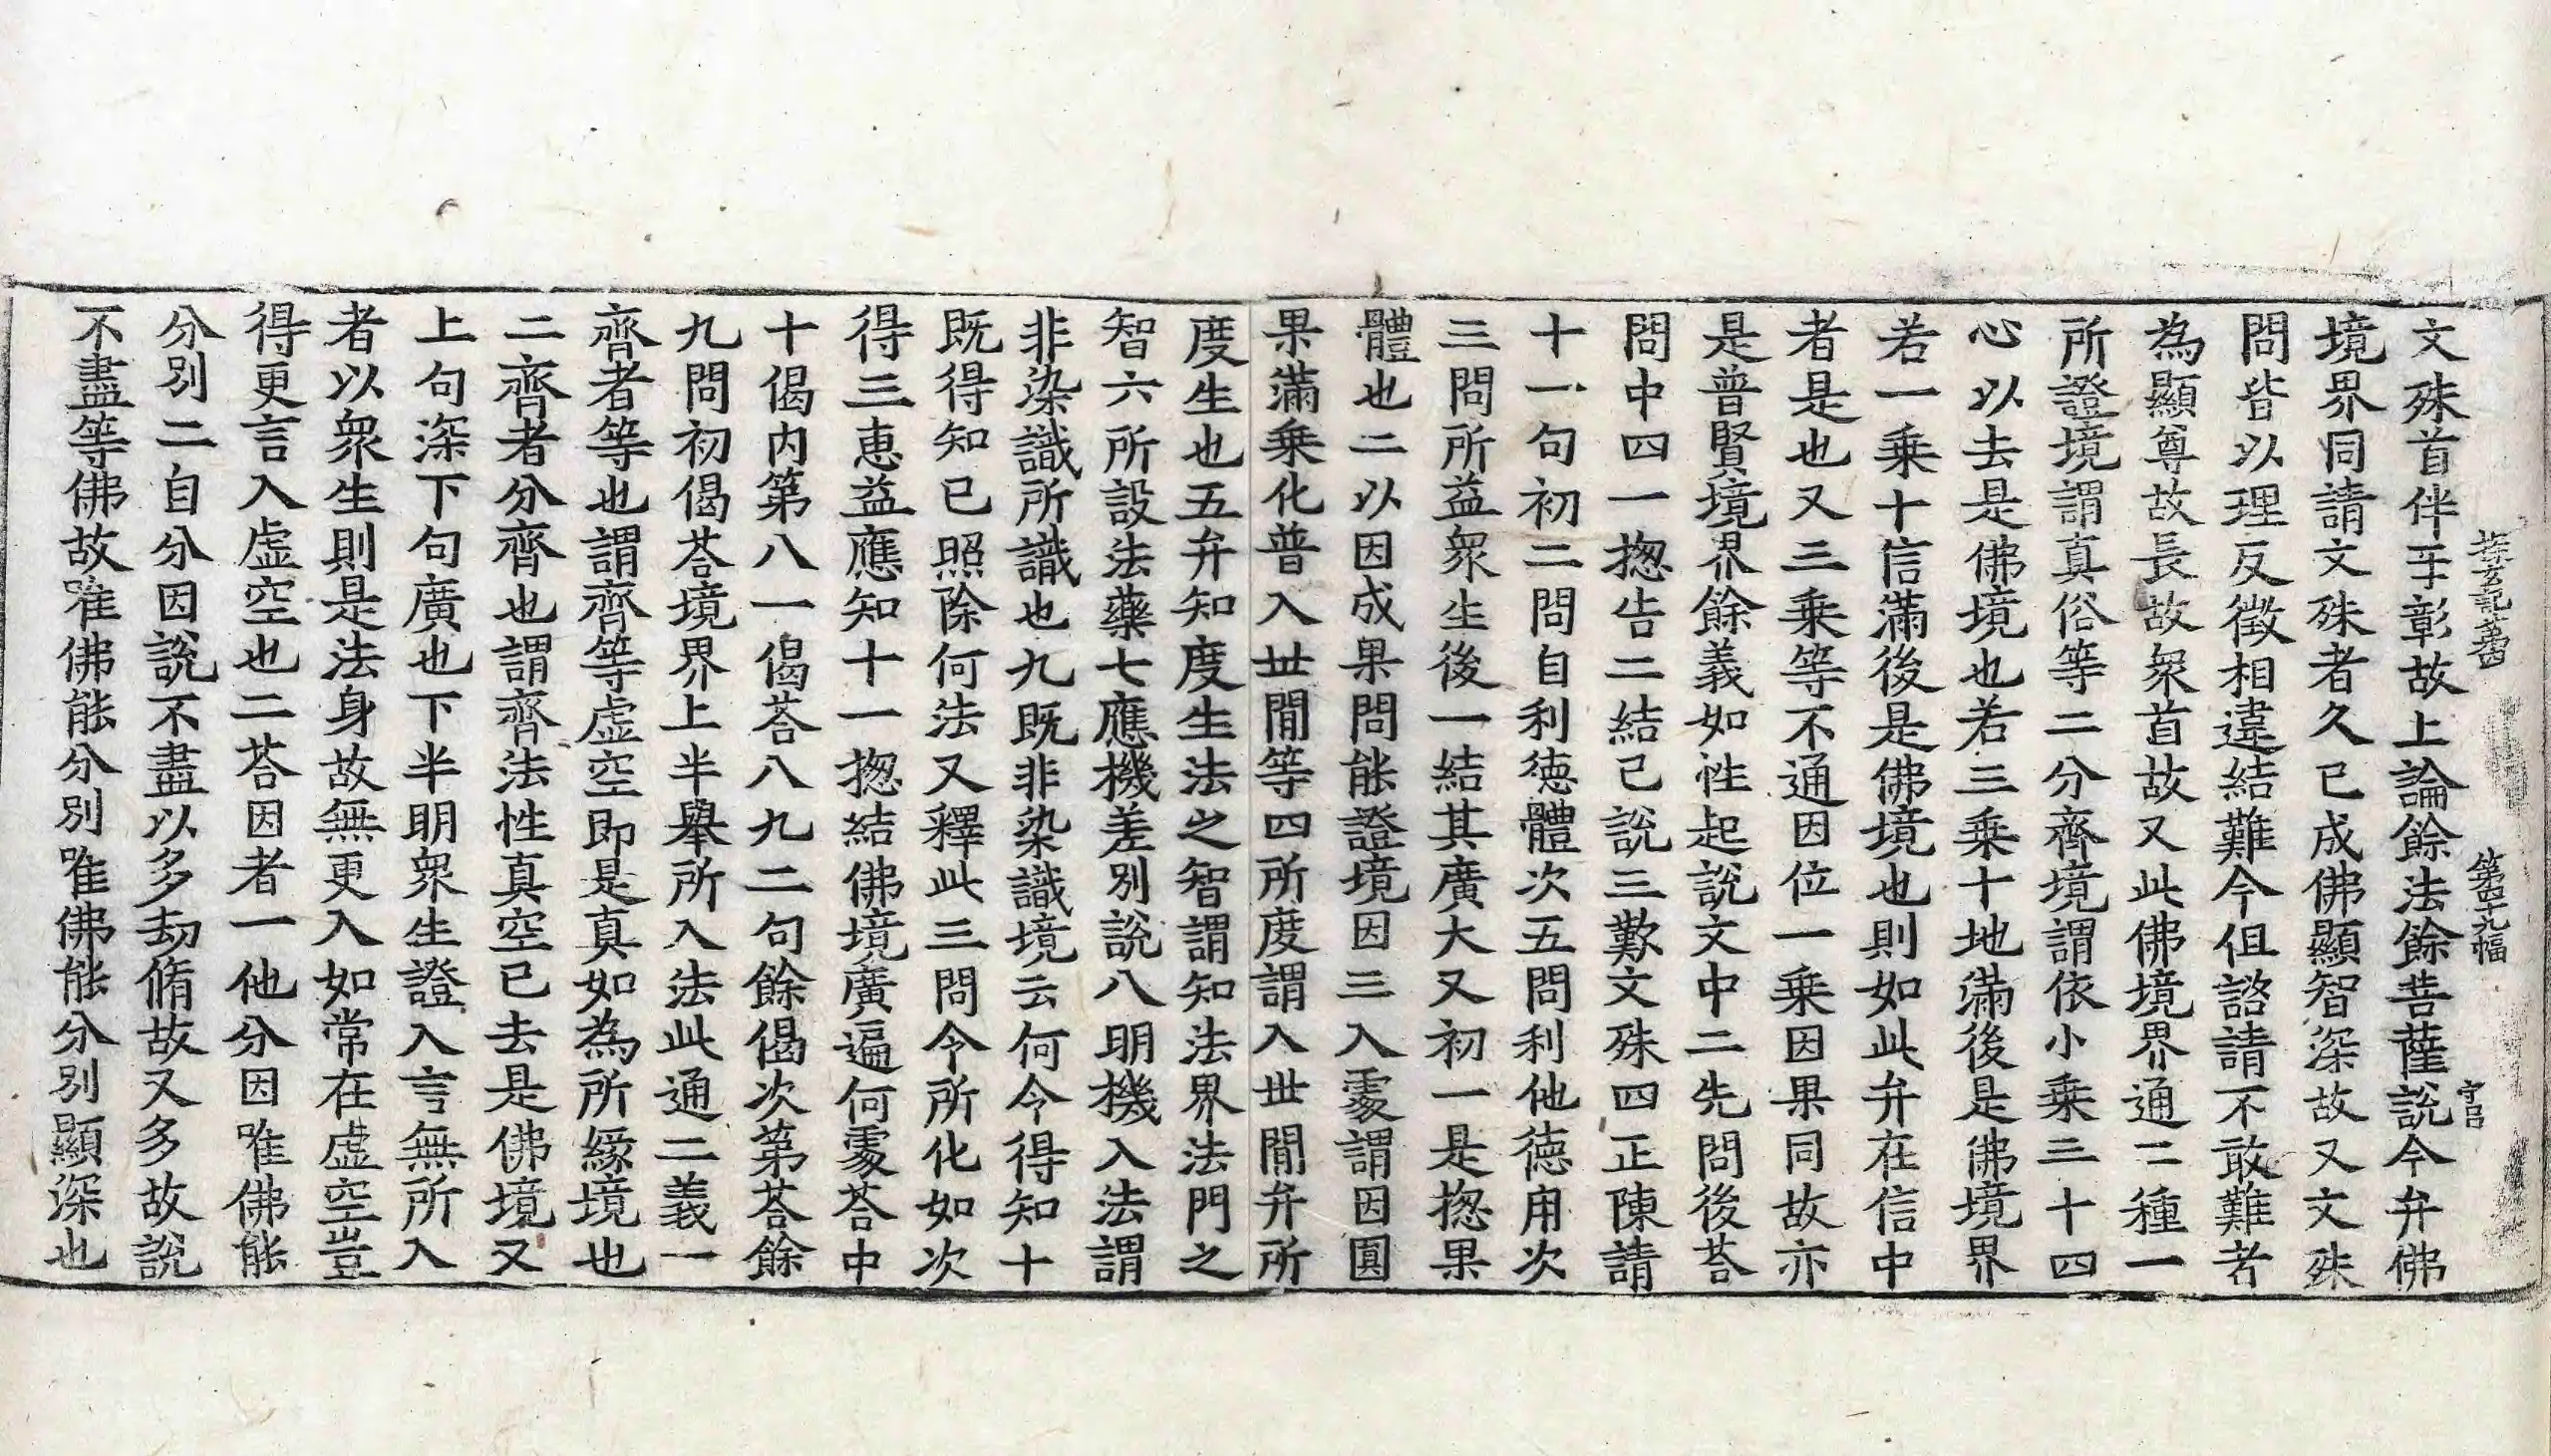 探玄記第四 第四十九幅 守昌
文殊首伴互彰故上論餘法餘菩薩說今弁佛
境界同請文殊者久已成佛顯智深故又文殊
問皆以理反徵相違結難今但諮請不敢難者
為顯尊故長故衆首故又此佛境界通二種一
所證境謂真俗等二分齊境謂依小乗三十四
心以去是佛境也若三乗十地滿後是佛境界
若一乗十信滿後是佛境也則如此弁在信中
者是也又三乗等不通因位一乗因果同故亦
是普賢境界餘義如性起說文中二先問後荅
問中四一揔告二結已說三歎文殊四正陳請
十一句初二問自利徳體次五問利他徳用次
三問所益衆生後一結其廣大又初一是揔果
體也二以因成果問能證境因三入䖏謂因圓
果滿乗化普入世間等四所度謂入世間弁所
度生也五弁知度生法之智謂知法界法門之
智六所設法藥七應機差別說八明機入法謂
非染識所識也九既非染識境云何今得知十
既得知已照除何法又釋此三問令所化如次
得三恵益應知十一揔結佛境廣遍何䖏荅中
十偈内第八一偈荅八九二句餘偈次第荅餘
九問初偈荅境界上半舉所入法此通二義一
齊者等也謂齊等虛空即是真如為所緣境也
二齊者分齊也謂齊法性真空已去是佛境又
上句深下句廣也下半明衆生證入言無所入
者以衆生則是法身故無更入如常在虛空豈
得更言入虛空也二荅因者一他分因唯佛能
分別二自分因說不盡以多劫脩故又多故說
不盡等佛故唯佛能分別唯佛能分別顯深也